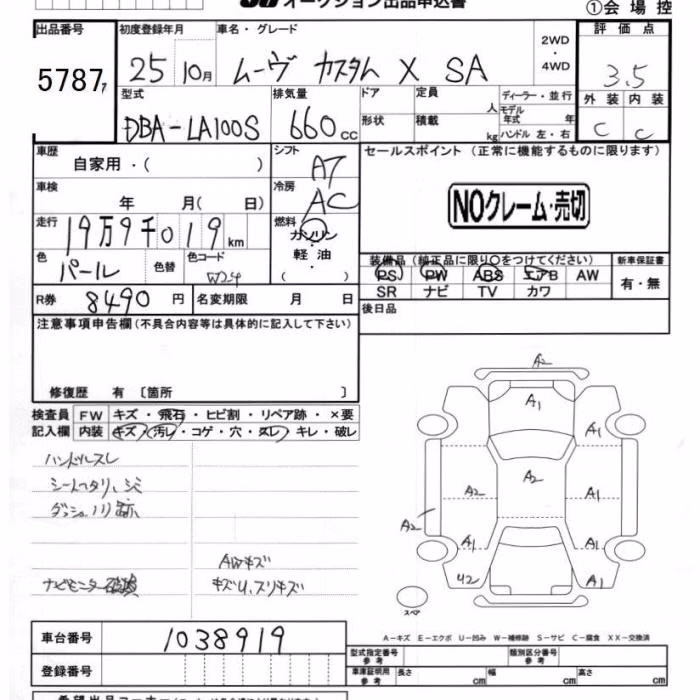 オークション出品申込書
①会場控
出品番号 初度登録年月 車名・グレード 2WD・4WD 評価点
5787 25 10月 ムーヴ カスタム X SA 3.5
型式 排気量 ドア 定員 人 ディーラー・並行 外装 内装
モデル年式 年
DBA-LA100S 660cc 形状 積載 kg ハンドル 左・右 C C
車歴 自家用・( ) シフト AT セールスポイント (正常に機能するものに限ります)
車検 年 月( 日) 冷房 AC
NOクレーム・売切
走行 19万9千019km 燃料 ガソリン・軽油・( )
色 パール 色替 色コード W24
装備品 (純正品に限り○をつけてください) 新車保証書
PS PW ABS エアB AW 有・無
SR ナビ TV カワ
R券 8490円 名変期限 月 日 後日品
注意事項申告欄(不具合内容等は具体的に記入して下さい)
修復歴 有 〔箇所 〕
検査員 FW キズ・飛石・ヒビ割・リペア跡・×要
記入欄 内装 キズ・汚レ・コゲ・穴・スレ・キレ・破レ
ハンドルスレ
シートヘタリ、シミ
ダッシュ川跡
AWキズ
ナビモニター破損 キズU、スリキズ
A2
A1
A2
A2 A1
A2
A1 A1
U2 A1
スペア
A-キズ E-エクボ U-凹み W-補修跡 S-サビ C-腐食 XX-交換済
車台番号 1038919
型式指定番号 参考 類別区分番号 参考
登録番号
車庫証明用 参考 長さ cm 幅 cm 高さ cm